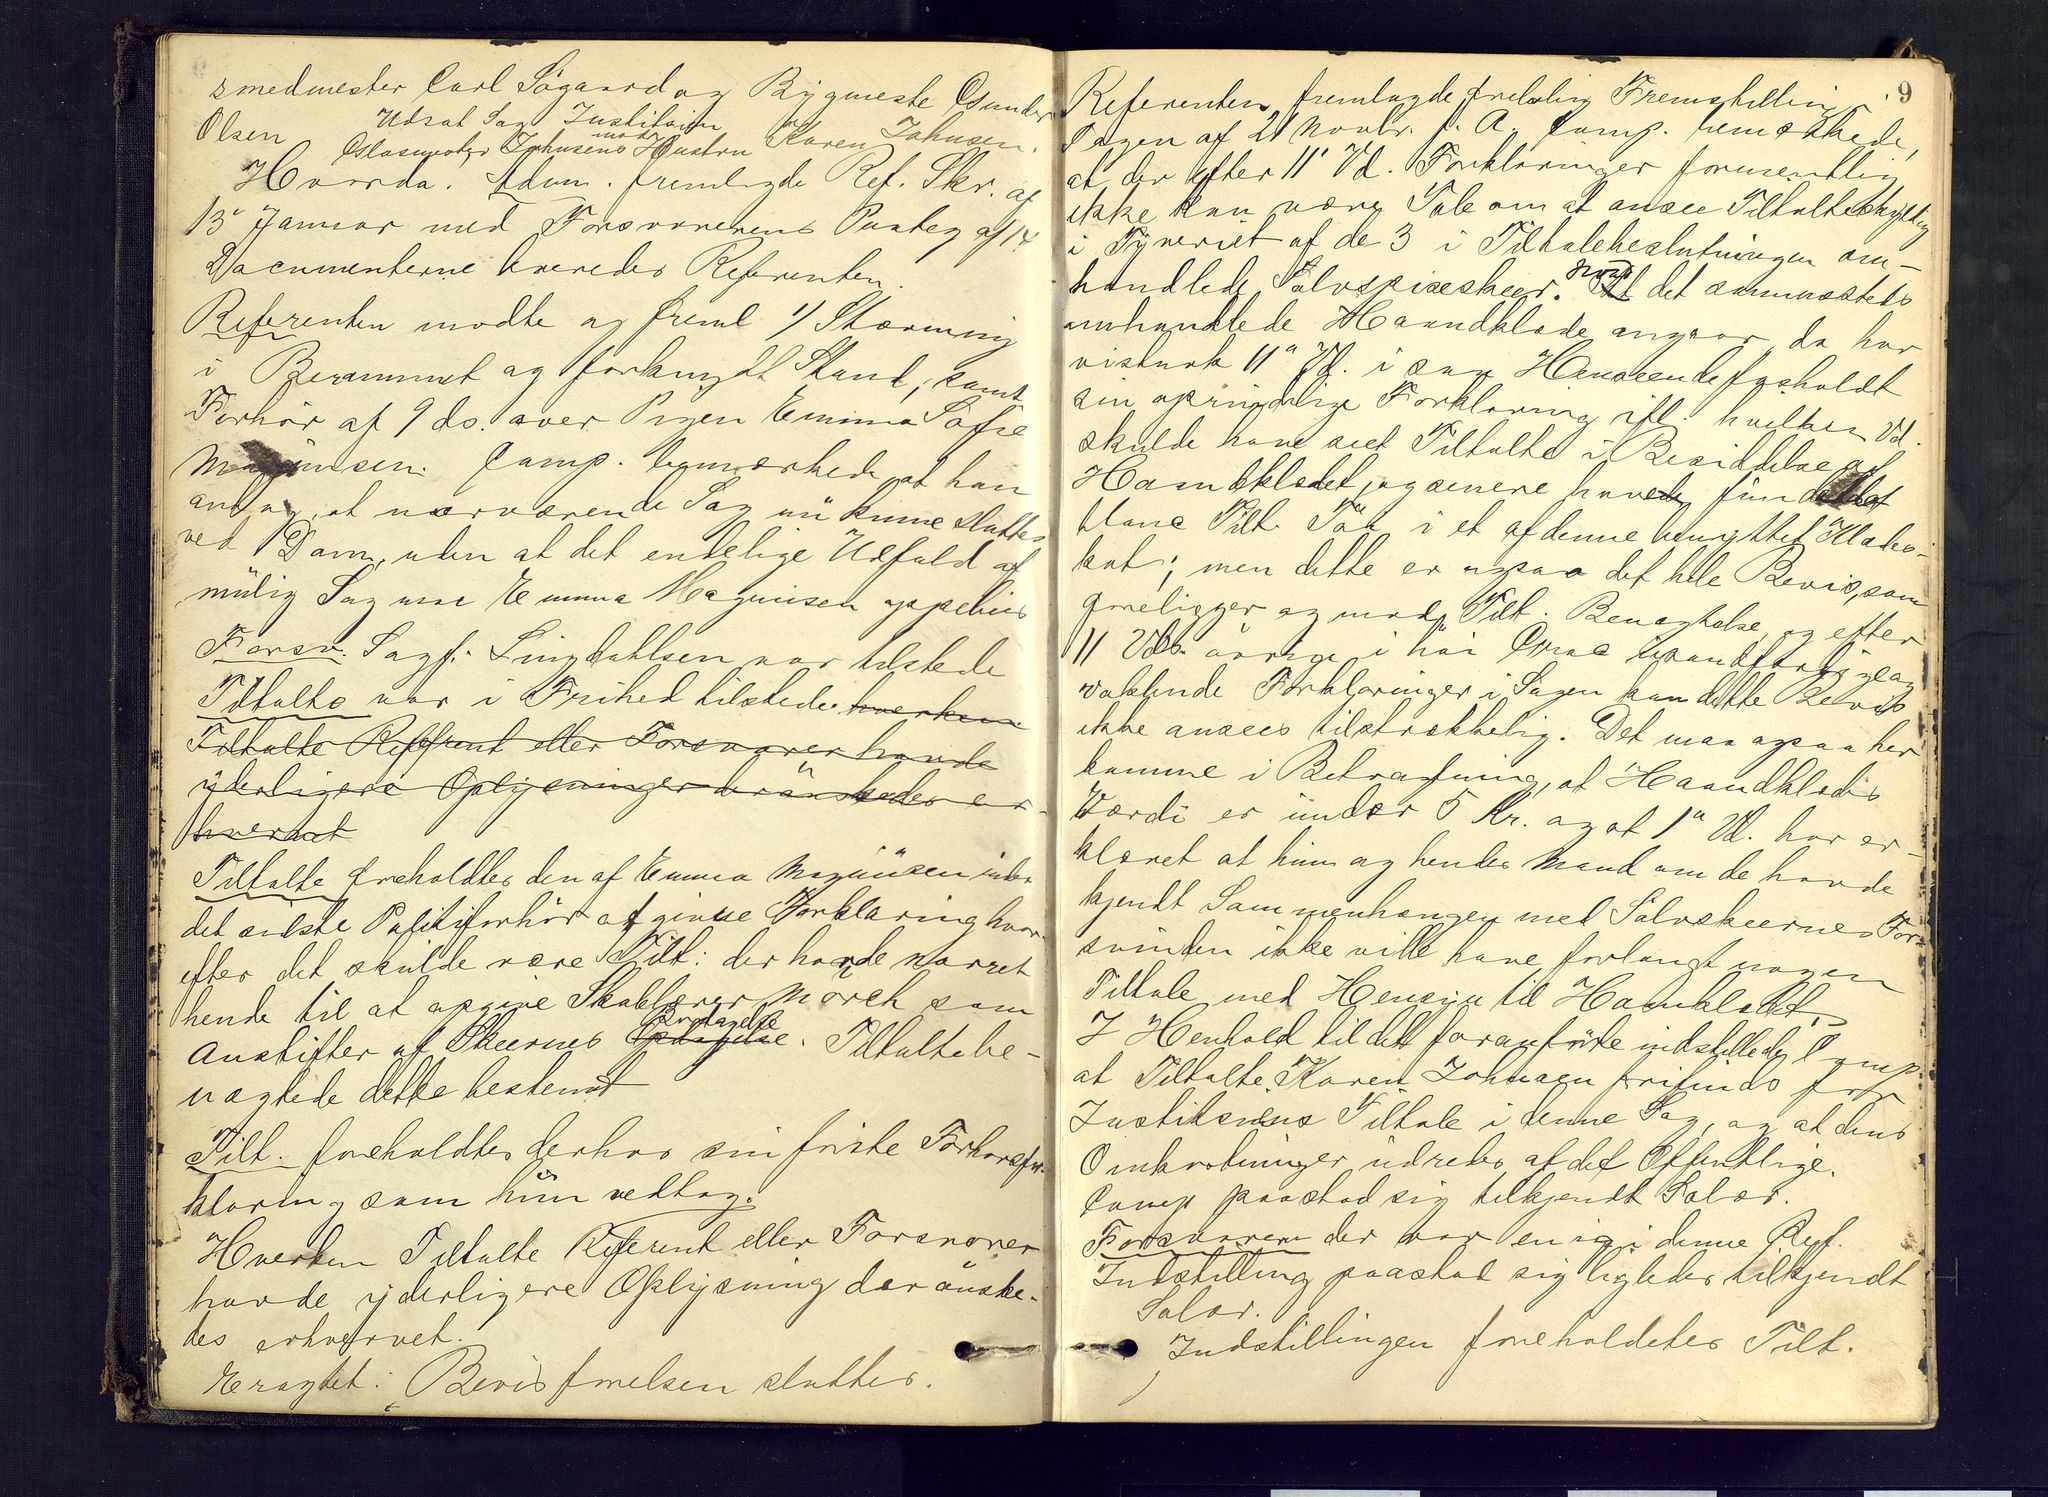 smedmester Carl Søgaard og Bygmeste Gunder
Olsen
Udsat Sag Justitsien
mod
Glasmester Johnsens Hustru Karen Johnsen.
Hvorda. Adm. fremlagde Ref. Skr. af
13' Januar med Forsvarerens Paateg af 14
Documenterne leveredes Referenten.
Referenten mødte og freml 1/ Stævning
i Berammet og forkyndt Stand, samt
Forhör af 9 ds. over Pigen Emma Sofie
Magnüsen. Comp. bemærkede, at han
antog, at nærværende Sag nü kunne sluttes
ved Dom, uden at det endelige Udfald af
mülig Sag mod Emma Magnüsen oppebies
Forsv. Sagf. Lingdahlsen var tilstede
Tiltalte var i Frihed tilstede. hverken
Tiltalte Referent eller Forsvarer havde
yderligere Oplysninger der önskedes er-
hvervet
Tiltalte foreholdtes den af Emma Magnüsen under
det sidste Politiforhör afgivne Forklaring hvor-
efter det skülde være Tilt: der havde narret
hende til at opgive Skolelærer Mörch som
Anstifter af Skeernes Borttagelse. Tiltalte be-
nægtede dette bestemt
Tilt. foreholdtes derhos sin første Forhørsfor-
klaring som hün vedtog.
Hverken Tiltalte Referent eller Forsvarer
havde yderligere Oplysning der önske-
des erhvervet.
Eragtet: Bevisførelsen sluttes.
9
Referenten fremlagde frelølig Fremstilling
Sagen af 21 Novbr. f. A. Comp. bemærkede,
at der efter 11' Vd. Forklaringer formentlig
ikke kan være Tale om at ansee Tiltalte skyldig
i Tyveriet af de 3 i Tiltalebeslutningen om-
handlede Sølvspiseskeer. Hvad det sammesteds
omhandlede Haandklæde angaar, da har
vistnok 11" Vd. i saa Henseende fastholdt
sin oprindelige Forklaring ifl. hvilken Vd.
skulde have seet Tiltalte i Besiddelse af
Haandklædet, og senere havde fundet det
blant Tilt. Tøi i et af denne benyttet Klædes-
kot; men dette er ogsaa det hele Bevis, som
foreligger og mod Tilt. Benægtelse, og efter
11 Vds. øvrige i høi Grad usandfærdige og
vaklende Forklaringer i Sagen kan dette Bevis
ikke ansees tilstrækkelig. Det maa ogsaa her
komme i Betragtning, at Haandklædets
Værdi er ünder 5 Kr. og at 1" Vd. har er-
klæret at hün og hendes Mand om de havde
kjendt Sammenhængen med Sølvskeernes For-
svinden ikke vilde have forlangt nogen
Tiltale med Hensyn til Haandklædet,
I Henhold til det foranførte indstillede Comp.
at Tiltalte Karen Johnsen frifindes for
Justitsiens Tiltale i denne Sag, og at dens
Omkostninger üdredes af det Offentlige.
Comp paastod sig tilkjendt Salær.
Forsvareren der var enig i denne Ref.
Indstilling paastod sig ligeledes tilkjendt
Salær.
Indstillingen foreholdtes Tilt.